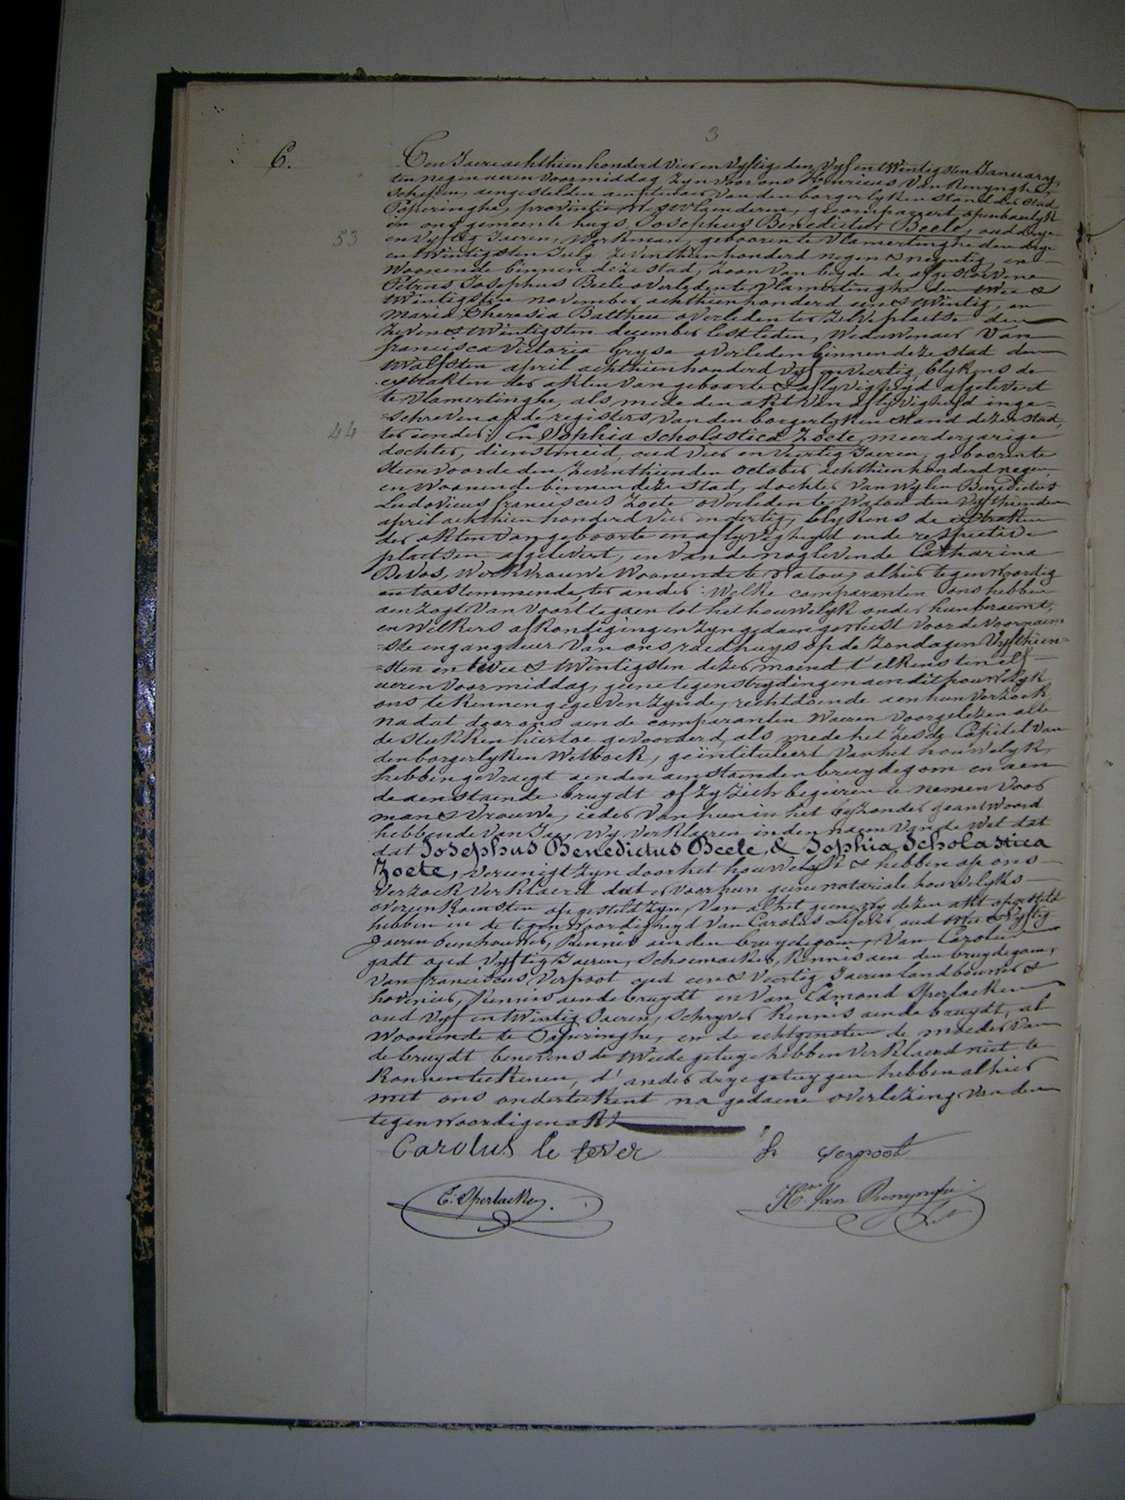 3
6.
Ten Jaere achthien honderd vier en vyftig den vyf en twintigsten January,
ten negen ueren voormiddag zyn voor ons Henricus Van Renynghe
schepen, aengestelden amptenaer van den borgerlyken stand der stad
Poperinghe, provintie West-vlaenderen, gecompareert openbaerlyk
53
in ons gemeente huys, Josephus Benedictus Beele, oud drye
en vyftig Jaeren, Werkman, geboren te Vlamertinghe den drye
en twintigsten July zeventhien honderd negen & negentig, en
Woonende binnen deze stad, zoon van beyde de afgestorvene
Petrus Josephus Beele overleden te Vlamertinghe den twee &
twintigsten november achthien honderd een & twintig, en
Maria Theresia Battheu overleden ter zelve plaetse den
zeven & twintigsten december lestleden, Weduwenaer van
francisca Victoria Gryse overleden binnen deze stad den
twalfsten april achthien honderd vyf en veertig, blykens de
extrakten der akten van geboorte & aflyvigheyd afgelevert
te Vlamertinghe, als mede den akt van aflyvigheyd inge-
=schreven op de registers van den borgerlyken stand dezer stad,
44
ter eender; En Sophia Scholastica Zoete, meerderjarige
dochter, dienstmeid, oud vier en veertig Jaeren, geboren te
Steenvoorde den zeventhienden october achthien honderd negen
en Woonende binnen deze stad, dochter van wylen Benedictus
Ludovicus franciscus Zoete overleden te Watou den vyfthienden
april achthien honderd vier en fertig, blykens de extrakten
der akten van geboorte en aflyvigheyd in de respective
plaetsen afgelevert, en van de naglevende Catharina
Devos, Werkvrouwe Woonende te Watou, alhier tegenwoordig
en toestemmende ter ander: Welke comparanten ons hebben
aenzogt van voort te gaen tot het houwelyk onder hun beraemd,
en Welkers afkondigingen zyn gedaen geweest voor de voornaem-
=ste ingangdeur van ons raedhuys op de zondagen vyfthien-
=sten en twee & twintigsten dezer maend t'elkens ten elf
ueren voormiddag, geene tegenstrydingen aen dit houwelyk
ons te kennen gegeven zynde, rechtdoende aen hun verzoek
na dat door ons aen de comparanten waeren voorgelezen alle
de stukken hiertoe gevoorderd, als mede het zesde Capitel van
den borgerlyken Wetboek, geïntituleert van het houwelyk,
hebben gevraegt aen den aenstaenden bruydegom en aen
de aenstaende bruydt of zy zich begeiren te nemen voor
man & vrouwe, ieder van hun in het byzonder geantwoord
hebbende van Ja, wy verklaeren in den naem van de Wet dat
dat Josephus Benedictus Beele, & Sophia Scholastica
Zoete, vereenigt zyn door het houwelyk & hebben op ons
verzoek verklaerd dat er voor hun geene notariale houwelyks
overeenkomsten opgesteld zyn, van al het geene wy dezen akt opgesteld
hebben in de tegenwoordigheyd van Carolus Lefever oud twee & vyftig
Jaeren beenhouwer, kennis aen den bruydegom, Van Carolus
oud vyftig Jaeren, Schoenmaeker, Kennis aen den bruydegom,
Van franciscus Verpoot oud een & veertig Jaeren landbouwer &
hovenier, kennis aen de bruydt en van Edmond Sperlaeken
oud vyf en twintig Jaeren, schryver kennis aen de bruydt, al
Woonende te Poperinghe, en de echtgenoten de moeder van
de bruydt benevens de tweede getuyge hebben verklaerd niet te
konnen teekenen, d'ander drye getuygen hebben alhier
met ons onderteekent na gedaene overlezing van den
tegenwoordigen akt
Carolus le fever
fr verpoot
E. Sperlaeken.
Hri Van Renynghe